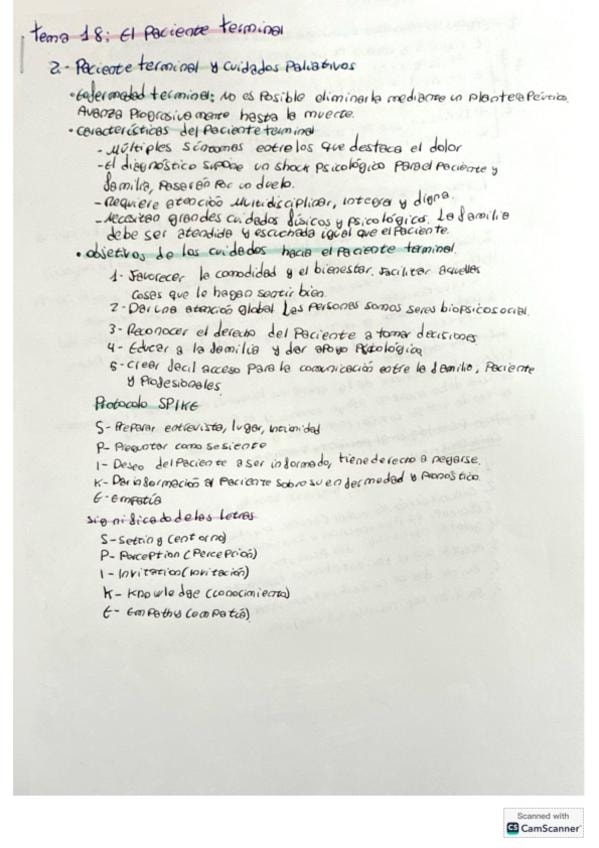 Tema 18: El Paciente Terminal
2.- Paciente terminal y cuidados Paliativos
• Enfermedad terminal: No es Posible eliminarla mediante un Plan
Avanza Progresivamente hasta la muerte.
• Características del Paciente terminal
- Múltiples síntomas entre los que destaca el dolor
- El diagnóstico supone un shock Psicológico Para el Paciente y
familia, Pasarán Por un duelo.
- Requiere atención Multidisciplinar, integra y digna.
- Necesitan grandes cuidados físicos y psicológicos. La familia
debe ser atendida y escuchada igual que el Paciente.
• Objetivos de los cuidados hacia el Paciente terminal.
1- Favorecer la comodidad y el bienestar. Facilitar aquellas
cosas que le hagan sentir bien.
2- Dar una atención global las Personas somos seres biopsicosocial.
3- Reconocer el derecho del Paciente a tomar decisiones
4- Educar a la familia y dar apoyo Psicológico
5- Crear fácil acceso Para la comunicación entre la familia, Paciente
y Profesionales
Protocolo SPIKE
S- Preparar entrevista, lugar, intimidad
P- Preguntar como se siente
I- Deseo del Paciente a ser informado, tiene derecho a negarse.
K- Dar información al Paciente sobre su enfermedad y Pronóstico.
E- Empatía
Significado de las letras
S- Setting (entorno)
P- Perception (Percepción)
I- Invitation (invitación)
K- Knowledge (conocimiento)
E- Empathy (empatía)
Scanned with
CS CamScanner